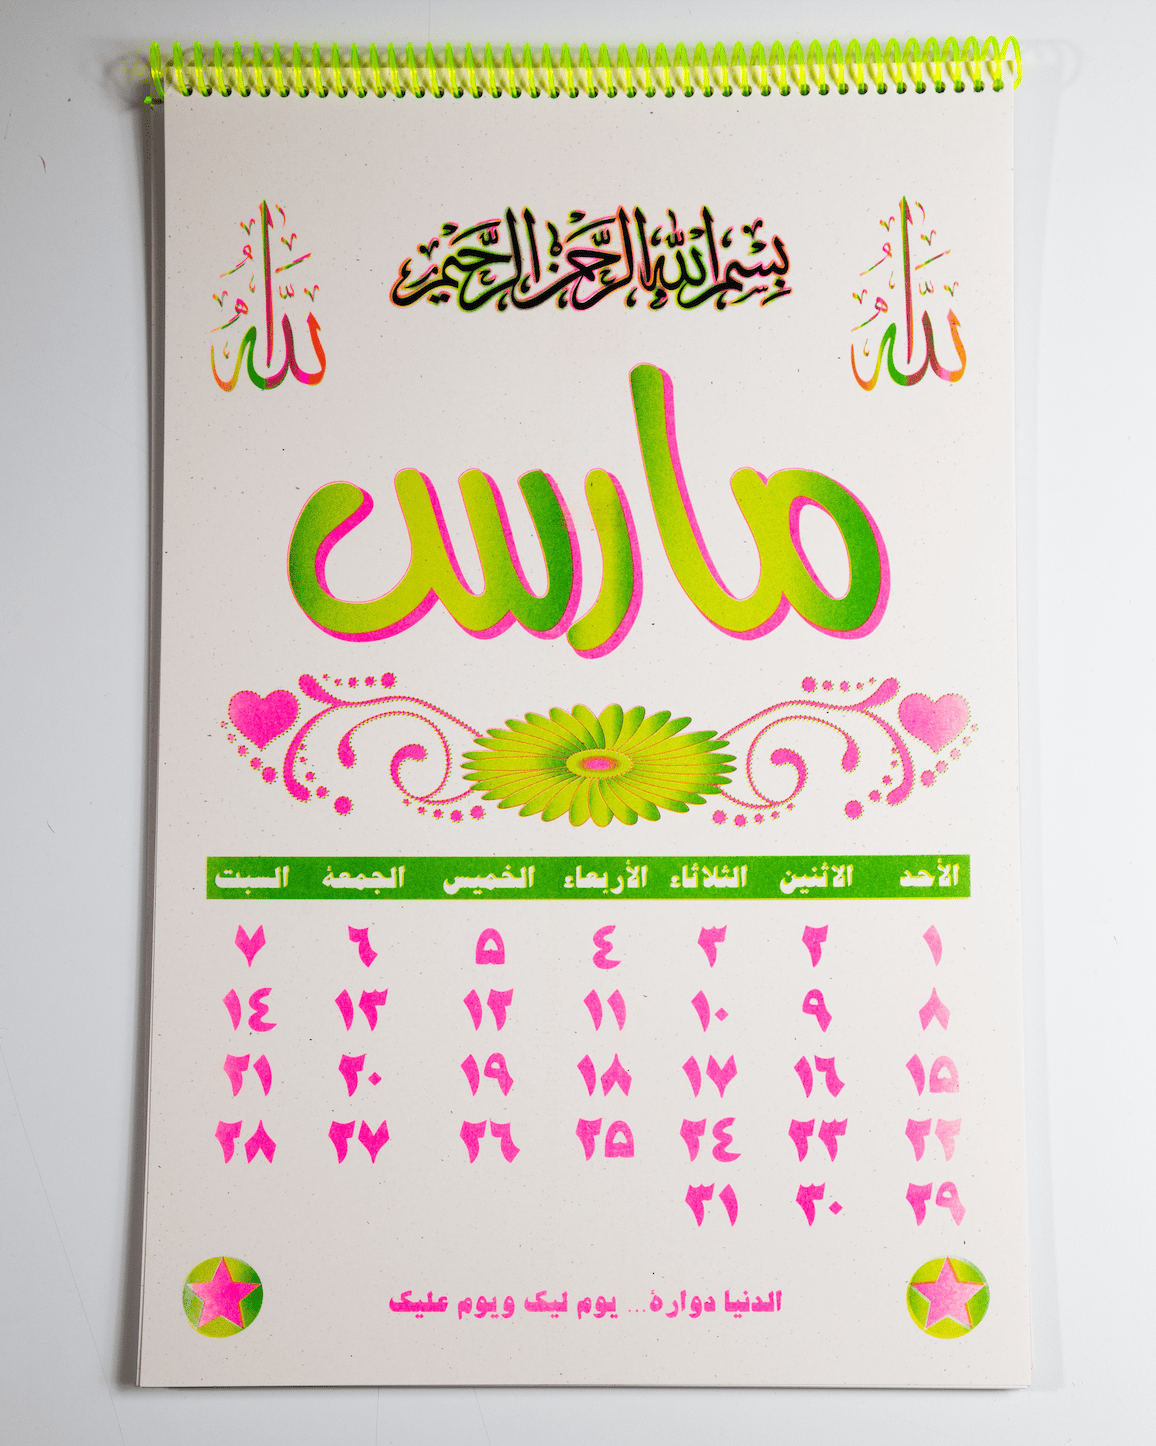 بسم الله الرحمن الرحيم
الله
الله
مارس
الأحد الاثنين الثلاثاء الأربعاء الخميس الجمعة السبت
١ ٢ ٣ ٤ ٥ ٦ ٧
٨ ٩ ١٠ ١١ ١٢ ١٣ ١٤
١٥ ١٦ ١٧ ١٨ ١٩ ٢٠ ٢١
٢٢ ٢٣ ٢٤ ٢٥ ٢٦ ٢٧ ٢٨
٢٩ ٣٠ ٣١
الدنيا دوارة... يوم ليك ويوم عليك